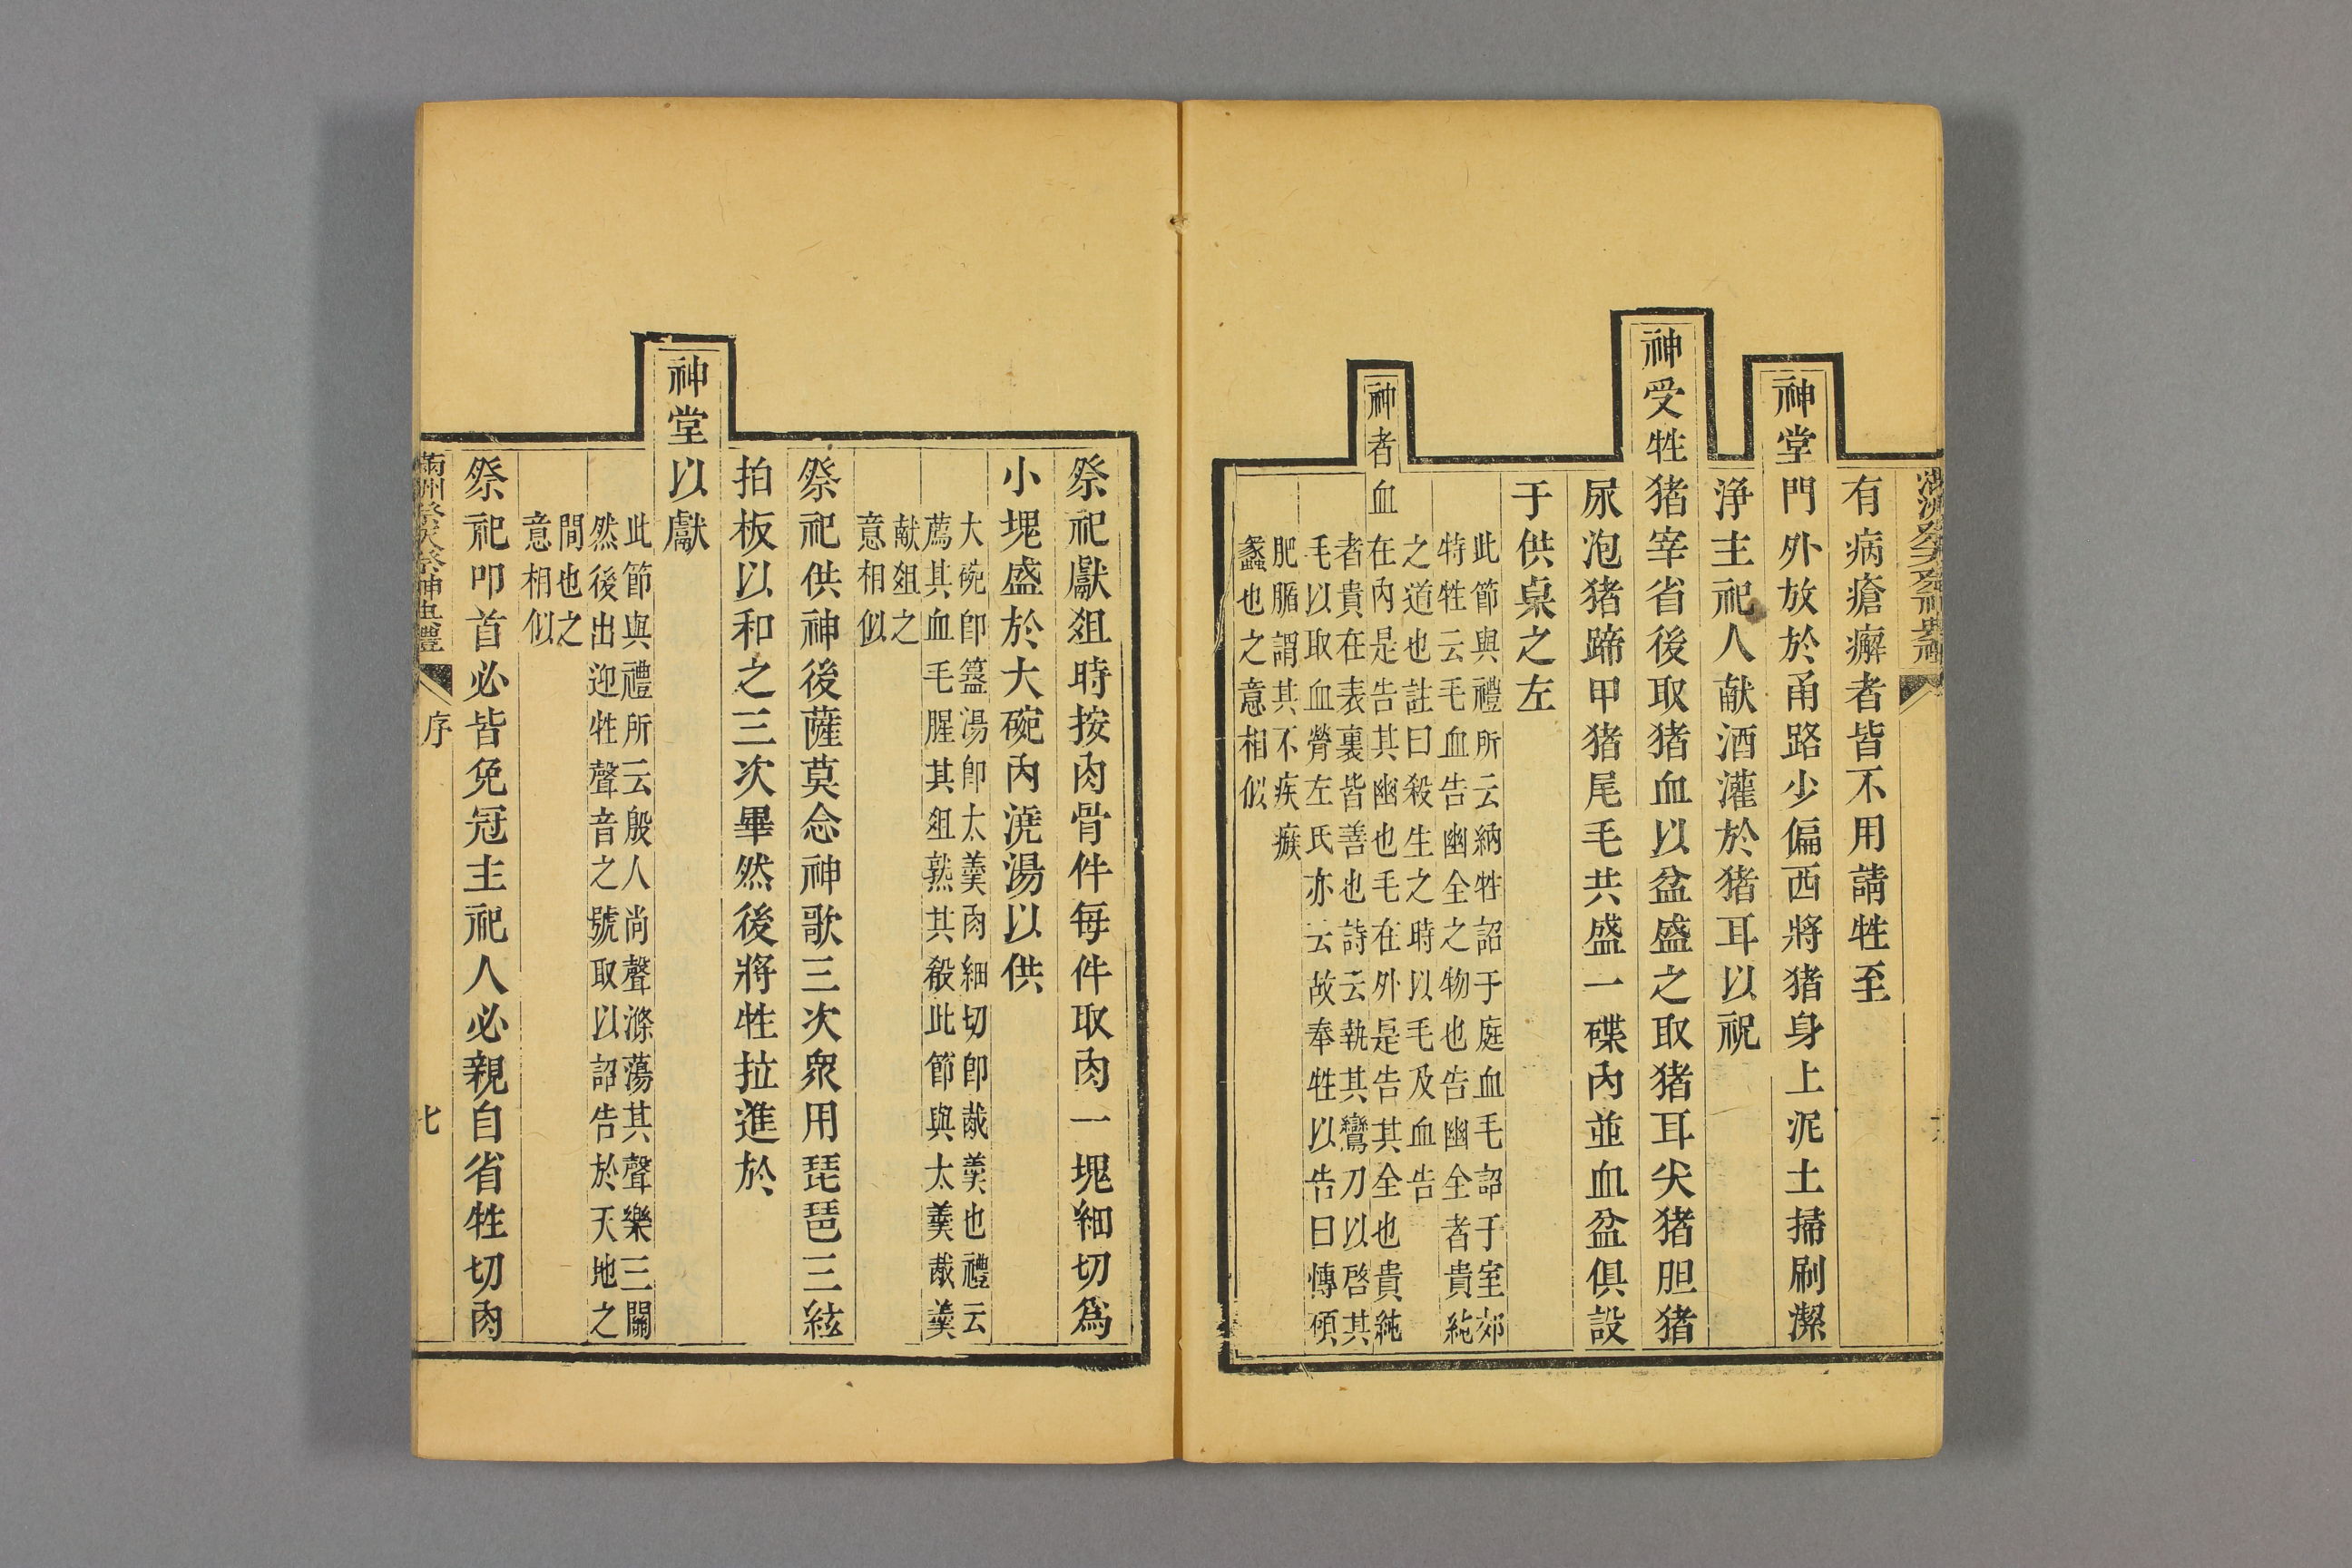 有病瘡癬者皆不用請牲至
神堂門外放於甬路少偏西將猪身上泥土掃刷潔
浄主祀人献酒灌於猪耳以祝
神受牲猪宰省後取猪血以盆盛之取猪耳尖猪胆猪
尿泡猪蹄甲猪尾毛共盛一碟內並血盆俱設
于供桌之左
此節與禮所云納牲詔于庭血毛詔于室郊
特牲云毛血告幽全之物也告幽全者貴純
之道也註曰殺生之時以毛及血告
神者血在內是告其幽也毛在外是告其全也貴純
者貴在表裏皆善也詩云執其鸞刀以啓其
毛以取血膋左氏亦云故奉牲以告曰博碩
肥腯謂其不疾瘯
蠡也之意相似
祭祀獻俎時按肉骨件每件取肉一塊細切爲
小塊盛於大碗內澆湯以供
大碗卽簋湯卽太羹肉細切卽胾羹也禮云
薦其血毛腥其俎熟其殽此節與太羹胾羹
献俎之
意相似
祭祀供神後薩莫念神歌三次衆用琵琶三絃
拍板以和之三次畢然後將牲拉進於
神堂以獻
此節與禮所云殷人尚聲滌蕩其聲樂三闋
然後出迎牲聲音之號取以詔告於天地之
間也之
意相似
祭祀叩首必皆免冠主祀人必親自省牲切肉
滿洲祭天祭神典禮
序
七